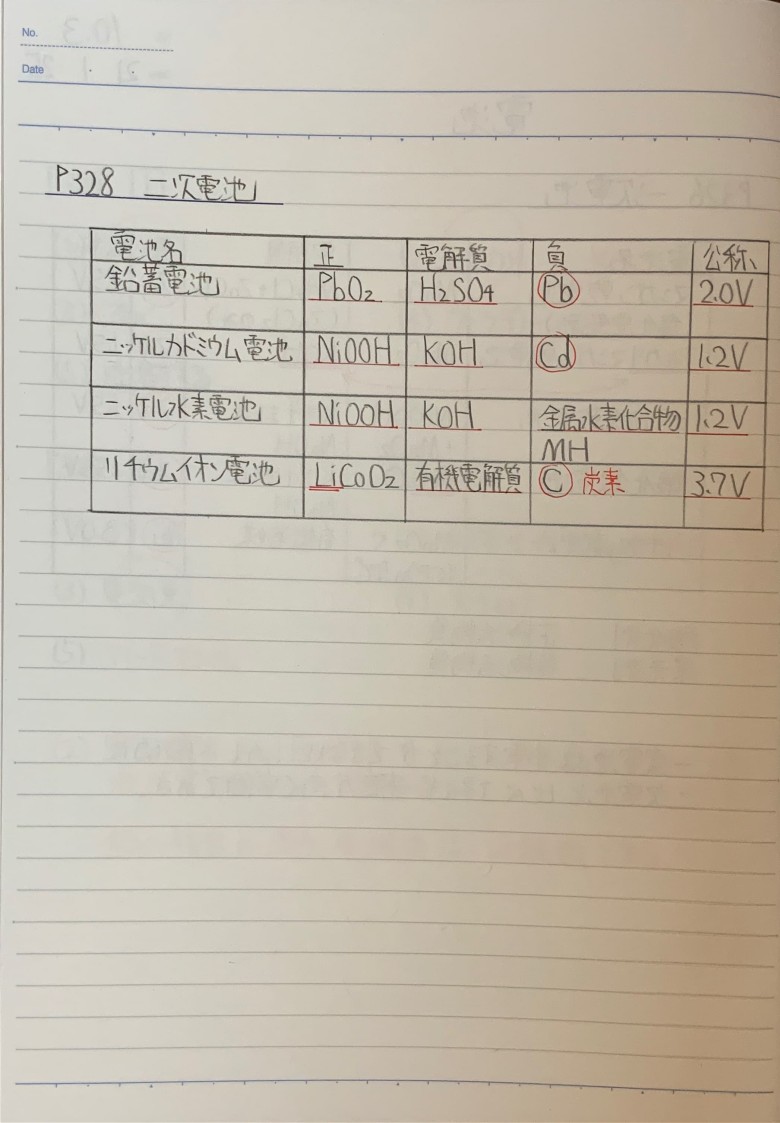 No.
Date
P328 二次電池
電池名 正 電解質 負 公称
鉛蓄電池 PbO₂ H₂SO₄ Pb 2.0V
ニッケルカドミウム電池 NiOOH KOH Cd 1.2V
ニッケル水素電池 NiOOH KOH 金属水素化合物 1.2V
MH
リチウムイオン電池 LiCoO₂ 有機電解質 C 炭素 3.7V